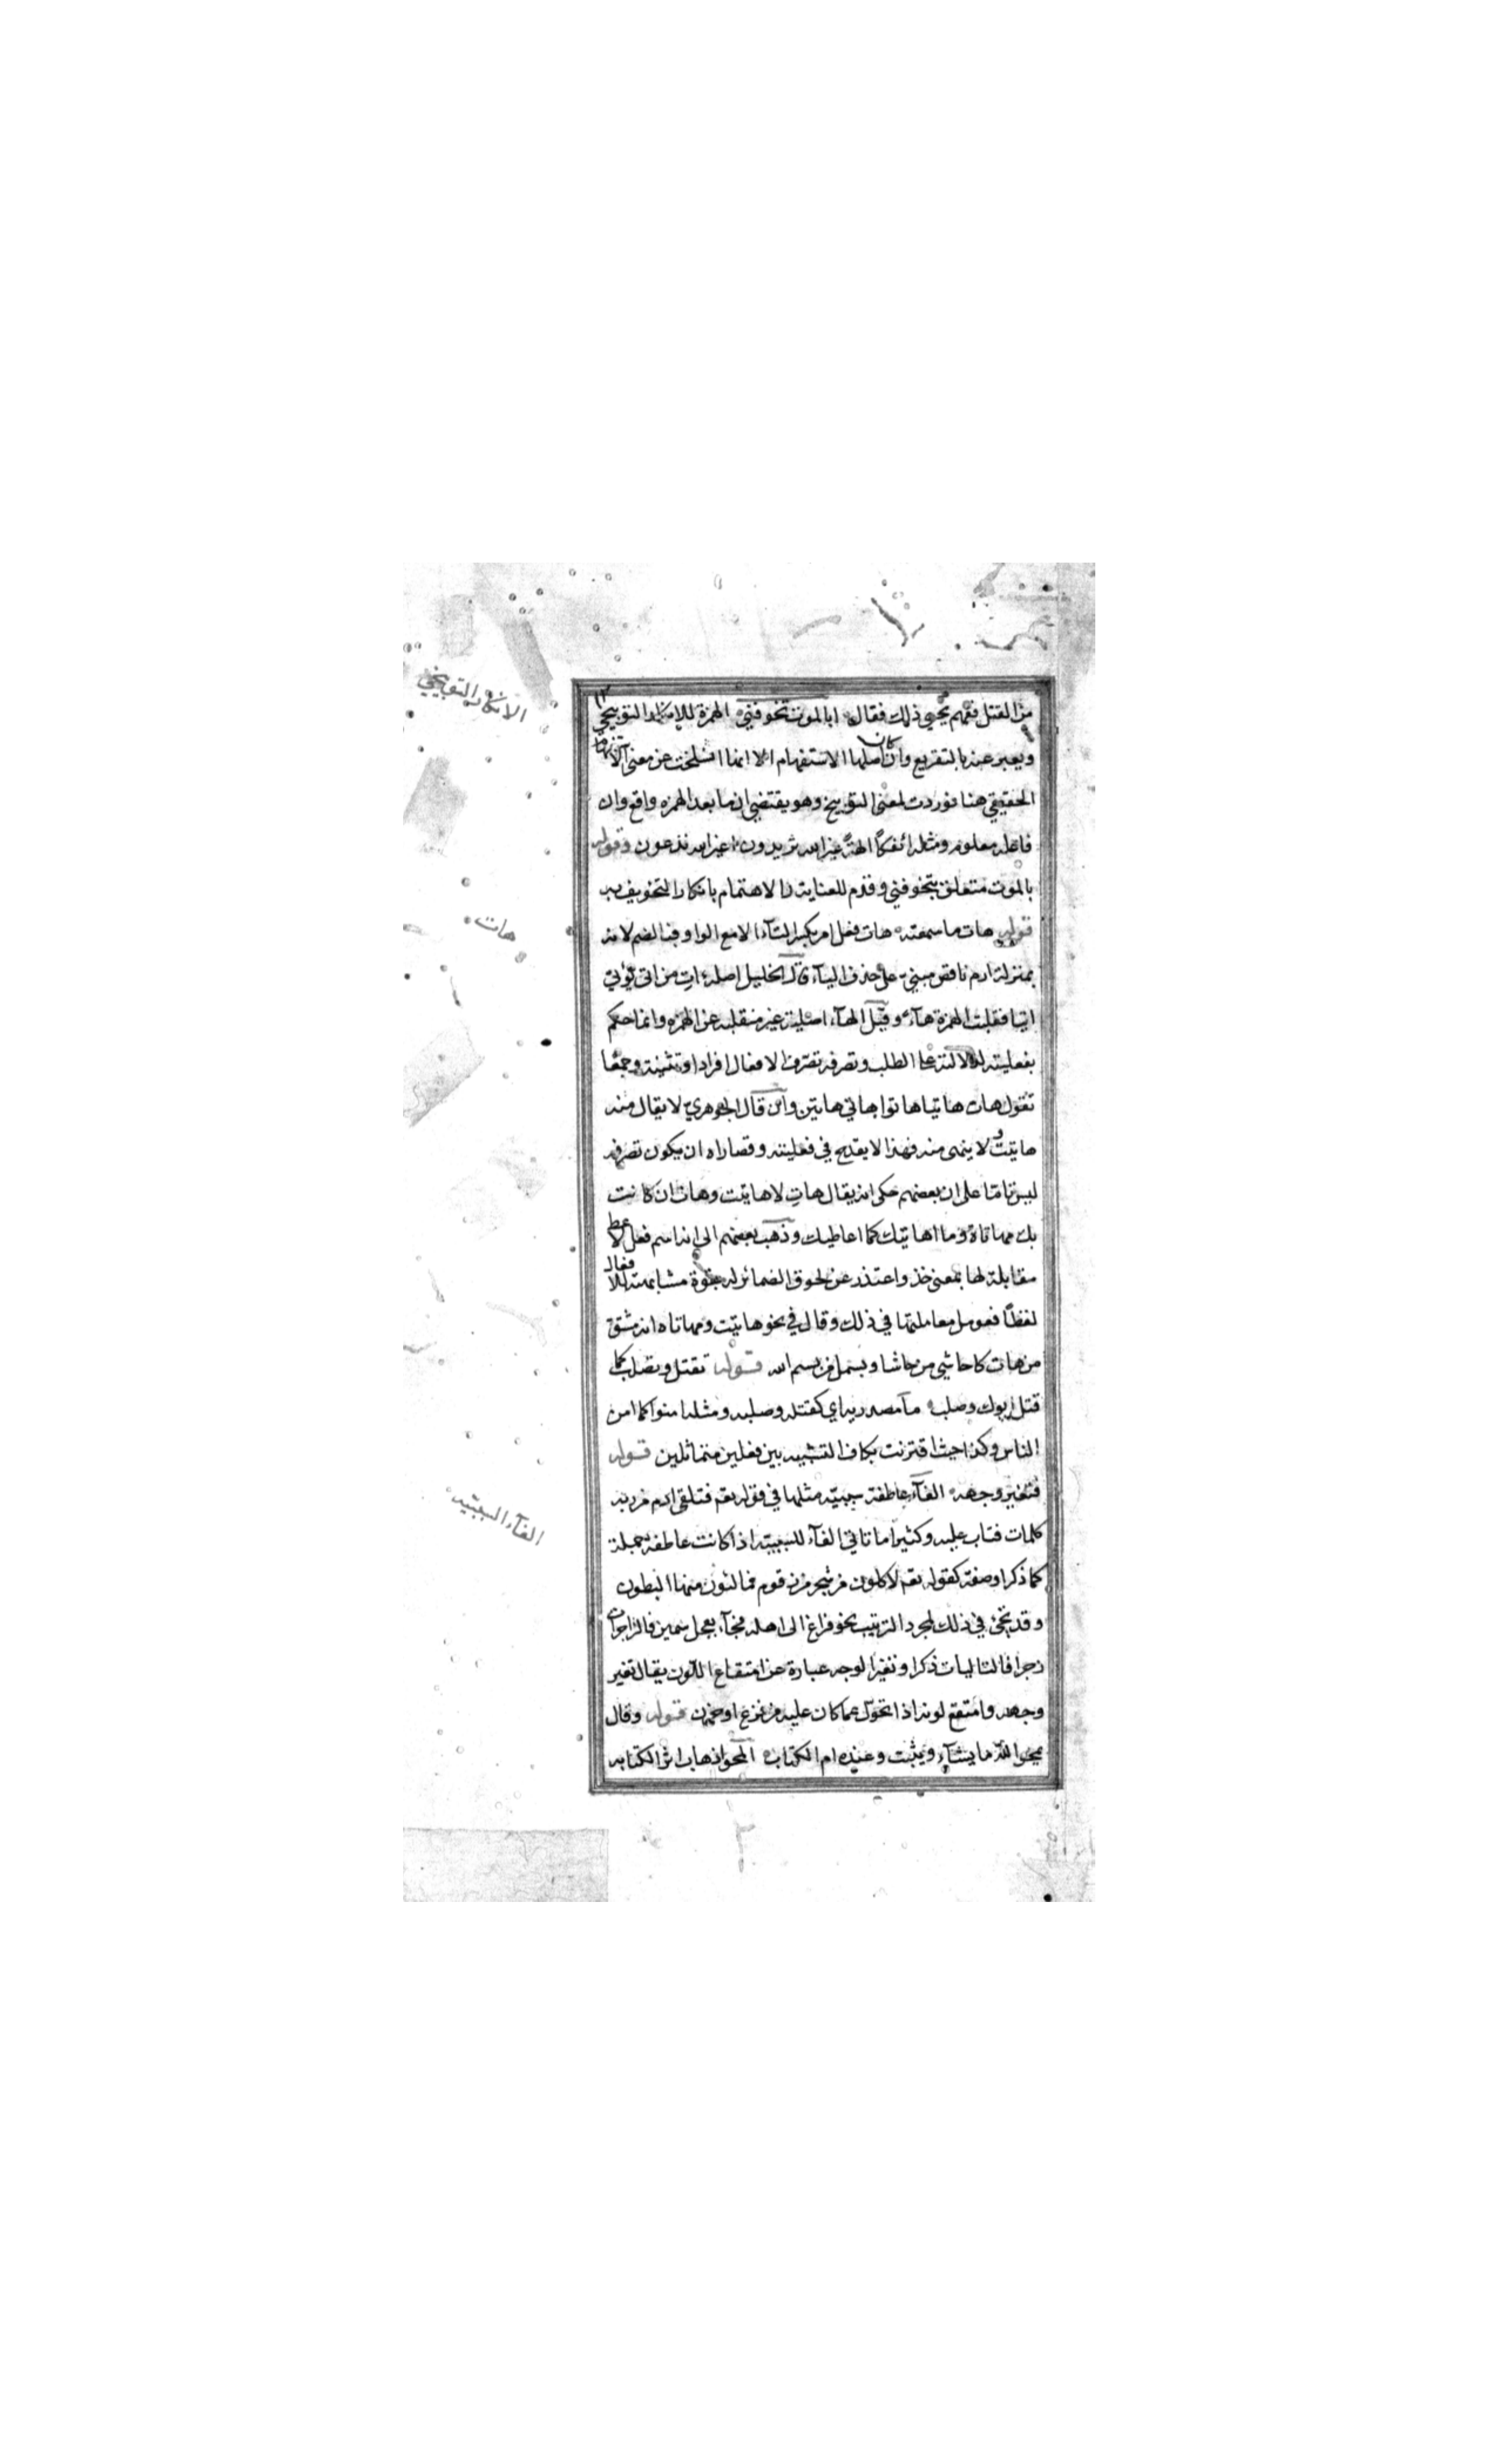 من القتل ففهم يحيى ذلك فقال ابالموت تخوفني الهمزة للانكار التوبيخي
ويعبر عنه بالتقريع وان كان اصلها الاستفهام الا انها انسلخت عن معنى الاستفهام
الحقيقي هنا فوردت لمعنى التوبيخ وهو يقتضي ان ما بعد الهمزه واقع وان
فاعله معلوم ومثله ائفكا الهة غير الله تريدون اغير الله تدعون وقوله
بالموت متعلق بتخوفني وقدم للعناية والاهتمام بانكار التخويف به
قوله هات ما سمعته هات فعل امر بكسر التآء الا مع الواو فبالضم لانه
بمنزلة ارم ناقص مبني على حذف اليآء قال الخليل اصله ات من اتى يؤتي
ايتا فقلبت الهمزة هآء وقيل الهآء اصلية غير منقلبه عن الهمزه وانما حكم
بفعليته لدلالته على الطلب وتصرفه تصرف الافعال افرادا وتثنية وجمعا
تقول هات هاتيا هاتوا هاتي هاتين وان قال الجوهري لا يقال منه
هاتيت ولا ينهى منه فهذا لا يقدح في فعليته وقصاراه ان يكون تصرفه
ليس تاما على ان بعضهم حكى انه يقال هات لا هاتيت وهات ان كانت
بك مهاتاة وما اهاتيك كما اعاطيك وذهب بعضهم الى انه اسم فعل لاعط
مقابلة لها بمعنى خذ واعتذر عن لحوق الضمائر له بقوة مشابهته للافعال
لفظا فعومل معاملتها في ذلك وقال في نحو هاتيت ومهاتاه انه مشتق
من هات كاحاشي من حاشا وبسمل من بسم الله قوله تقتل وتصلب كما
قتل ابوك وصلب ما مصدريه اي كقتله وصلبه ومثله امنوا كما امن
الناس وكذا حيث اقترنت بكاف التشبيه بين فعلين متماثلين قوله
فتغير وجهه الفآء عاطفة سببيه مثلها في قوله تعم فتلقى ادم من ربه
كلمات فتاب عليه وكثيرا ما تاتي الفآء للسببيه اذا كانت عاطفه جملة
كما ذكر اوصفة كقوله تعم لاكلون من شجر من زقوم فمالئون منها البطون
وقد تجئ في ذلك لمجرد الترتيب نحو فراغ الى اهله فجآء بعجل سمين فالزاجرات
زجرا فالتاليات ذكرا وتغير الوجه عبارة عن امتقاع اللون يقال تغير
وجهه وامتقع لونه اذا تحول عما كان عليه من فزع او حزن قوله وقال
يمحو الله ما يشآء ويثبت وعنده ام الكتاب المحو اذهاب اثر الكتابه
الانكار التوبيخي
هات
الفآء السببيه